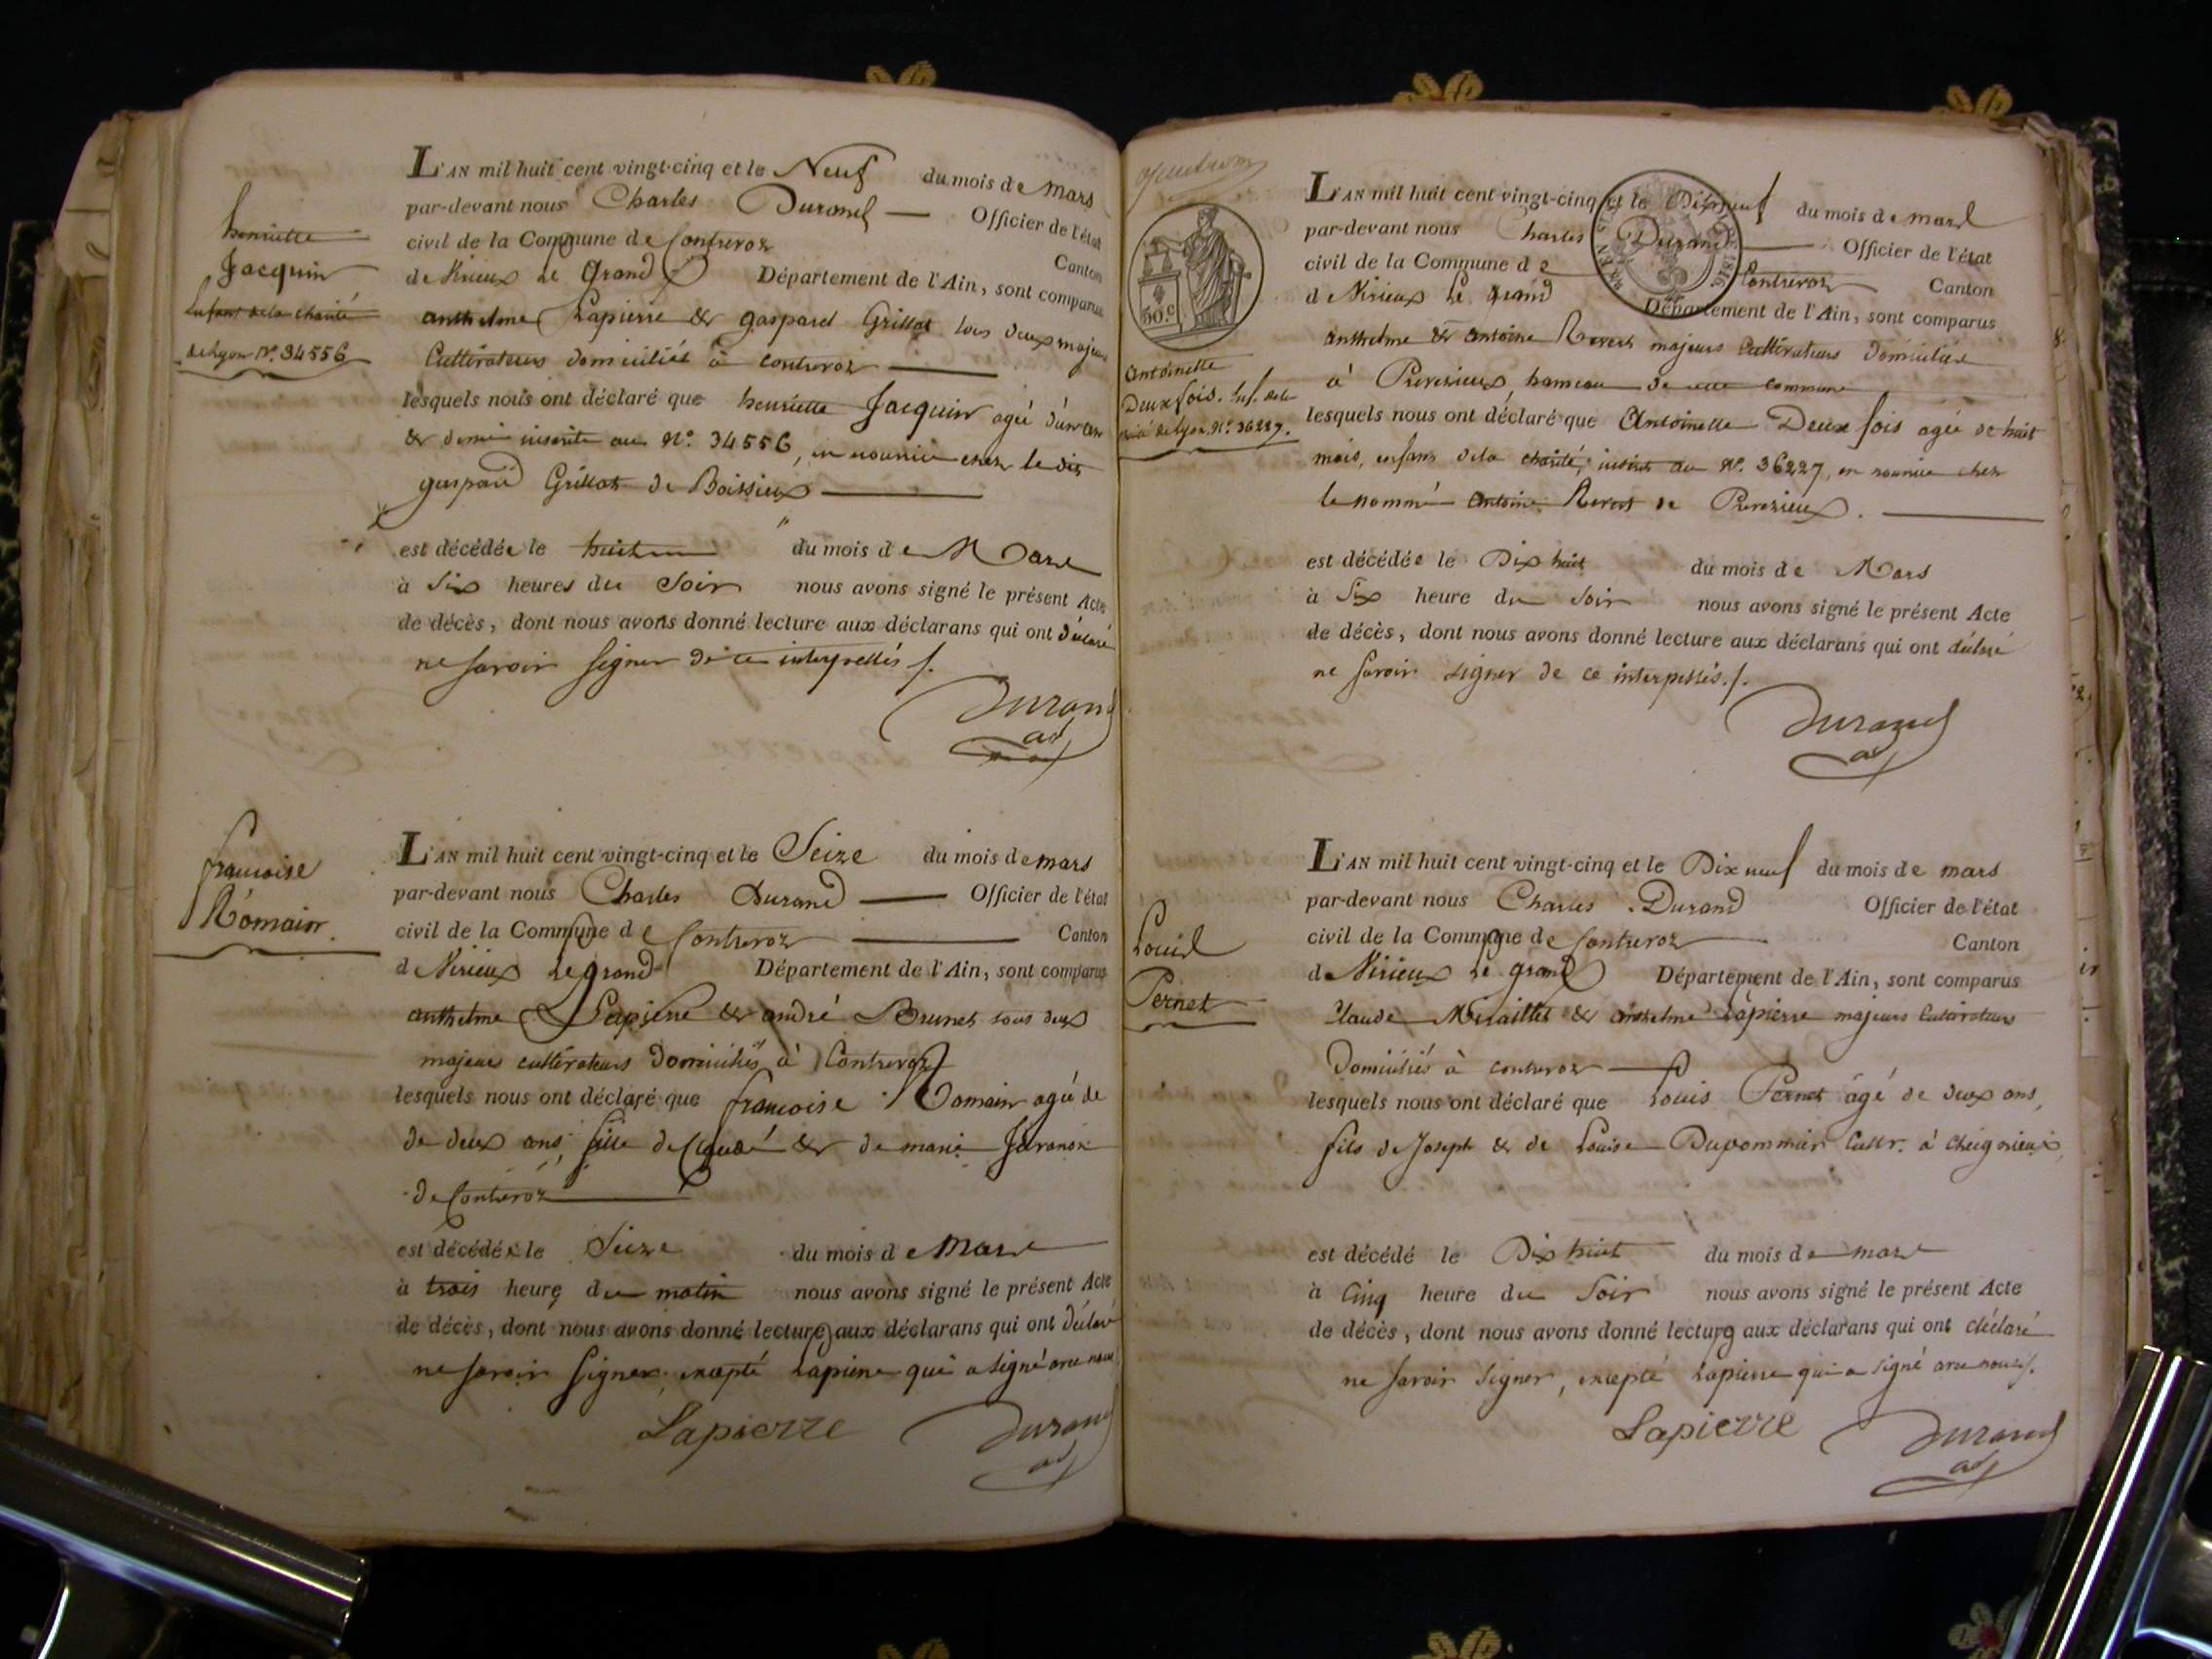 henriette
Jacquin
Enfant de la charité
de Lyon N.º 34556
L'AN mil huit cent vingt-cinq et le Neuf du mois de Mars
par-devant nous Charles Durand Officier de l'état
civil de la Commune de Contrevoz Canton
de Virieux le Grand Département de l'Ain, sont comparus
anthelme Lapierre & gaspard Grillot tous deux majeurs
Cultivateurs domiciliés à contrevoz
lesquels nous ont déclaré que henriette Jacquin agée d'un an
& demi inscrite au N.º 34556, en nourrice chez le dit
gaspard Grillot de Boissieux
est décédée le huit du mois de Mars
à Six heures du Soir nous avons signé le présent Acte
de décès, dont nous avons donné lecture aux déclarans qui ont déclaré
ne savoir signer de ce interpellés ./.
Durand
francoise
Romain
L'AN mil huit cent vingt-cinq et le Seize du mois de mars
par-devant nous Charles Durand Officier de l'état
civil de la Commune de Contrevoz Canton
de Virieux le grand Département de l'Ain, sont comparus
anthelme Lapierre & andré Brunet tous deux
majeurs cultivateurs Domiciliés à Contrevoz
lesquels nous ont déclaré que francoise Romain agée de
de deux ans, fille de Claude & de marie
de Contrevoz
est décédée le Seize du mois de Mars
à trois heure du matin nous avons signé le présent Acte
de décès, dont nous avons donné lecture aux déclarans qui ont déclaré
ne savoir signer, excepté Lapierre qui a signé avec nous
Lapierre Durand
50.c
antoinette
Deux fois. Enf. de la
charité de Lyon, N.º 36227.
L'AN mil huit cent vingt-cinq et le Dix neuf du mois de mars
par-devant nous Charles Durand Officier de l'état
civil de la Commune de Contrevoz Canton
de Virieux le grand Département de l'Ain, sont comparus
anthelme & antoine Revert majeurs Cultivateurs Domiciliés
à Prevezieux, hameau de cette commune
lesquels nous ont déclaré que Antoinette Deux fois agée de huit
mois, enfant de la charité, inscrite au N.º 36227, en nourrice chez
le nommé antoine Revert de Prevezieux.
est décédée le Dix huit du mois de Mars
à Six heure du Soir nous avons signé le présent Acte
de décès, dont nous avons donné lecture aux déclarans qui ont déclaré
ne savoir signer de ce interpellés ./.
Durand
Louis
Pernet
L'AN mil huit cent vingt-cinq et le Dix neuf du mois de mars
par-devant nous Charles Durand Officier de l'état
civil de la Commune de Contrevoz Canton
de Virieux le grand Département de l'Ain, sont comparus
Claude Miraillet & anthelme Lapierre majeurs Cultivateurs
Domiciliés à contrevoz
lesquels nous ont déclaré que Louis Pernet âgé de deux ans,
fils de Joseph & de Louise Dupommier Cultr. à Cheignieux,
est décédé le Dix huit du mois de mars
à Cinq heure du Soir nous avons signé le présent Acte
de décès, dont nous avons donné lecture aux déclarans qui ont déclaré
ne savoir signer, excepté Lapierre qui a signé avec nous ./.
Lapierre Durand